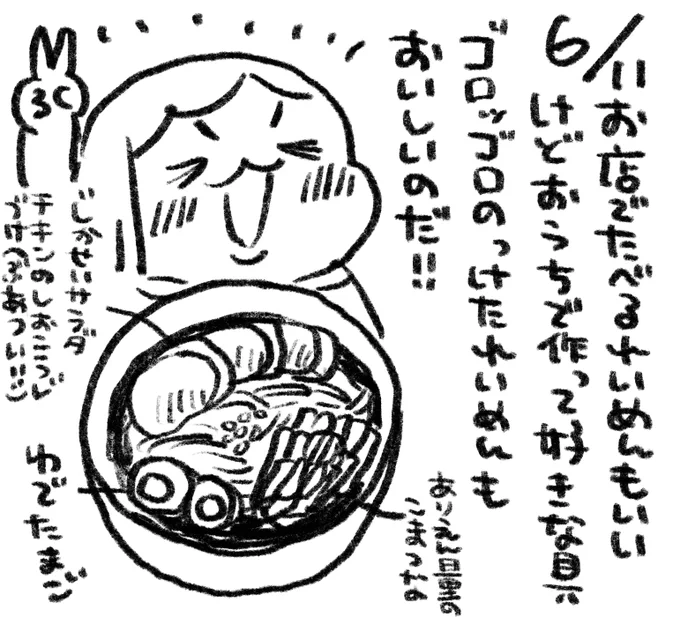 6/11 お店でたべるれいめんもいい
けどおうちで作って好きな具
ゴロッゴロのっけたれいめんも
おいしいのだ!!
じかせいサラダ
チキンのしおこうじ
づけ ぶあつい!!
ゆでたまご
ありえん量の
こまつなの